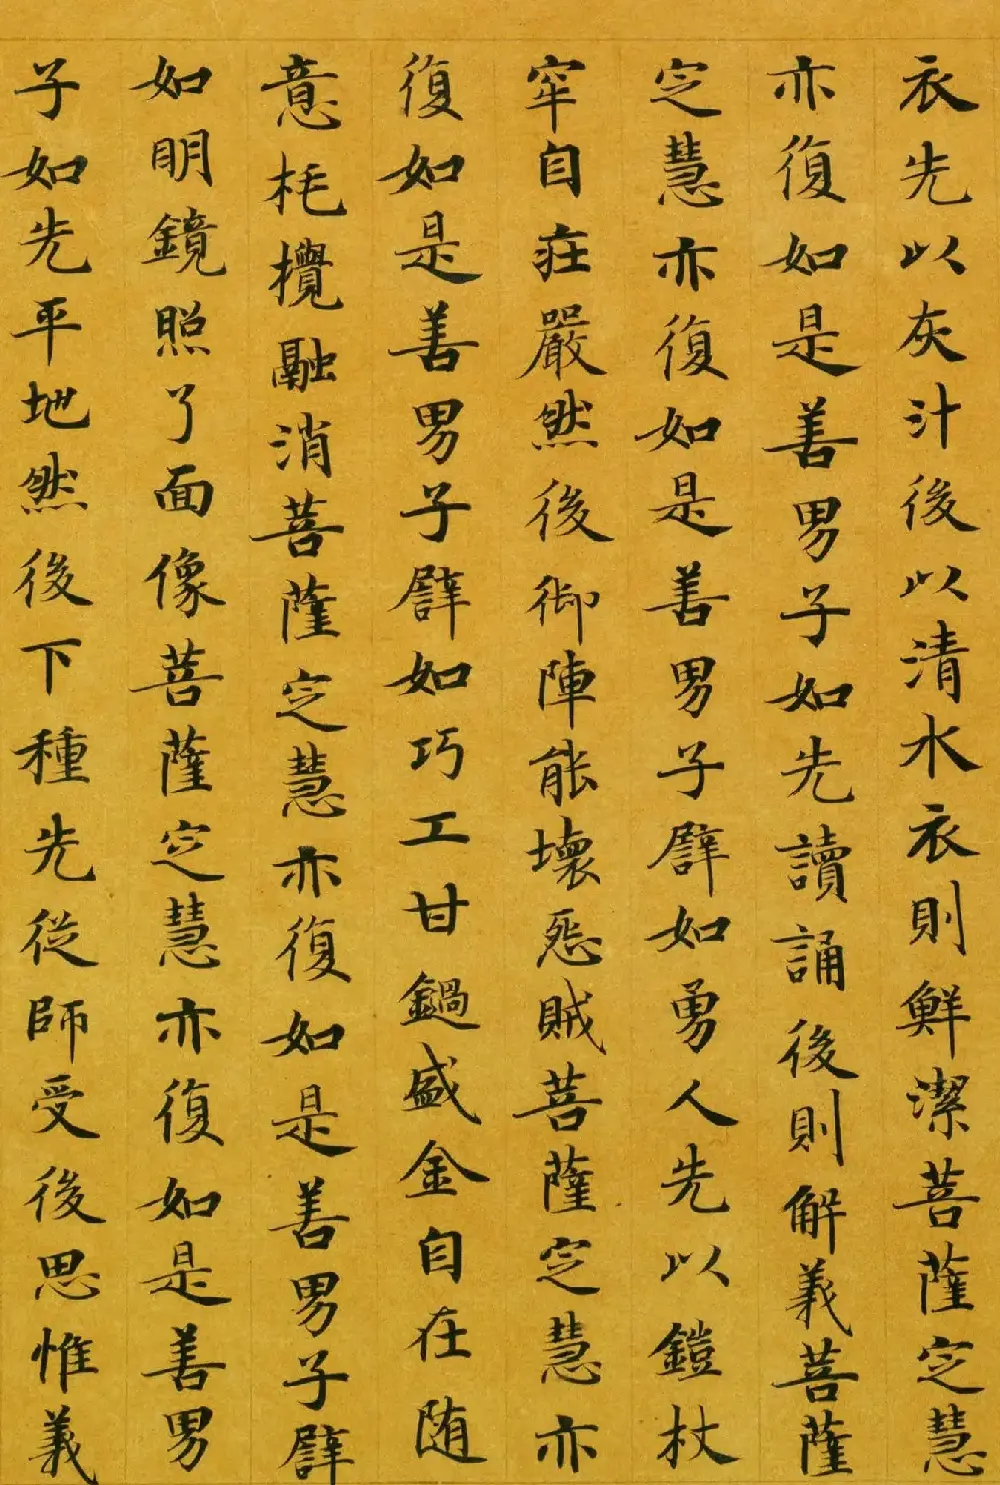 衣先以灰汁後以清水衣則鮮潔菩薩定慧
亦復如是善男子如先讀誦後則解義菩薩
定慧亦復如是善男子譬如勇人先以鎧杖
牢自莊嚴然後御陣能壞惡賊菩薩定慧亦
復如是善男子譬如巧工甘鍋盛金自在随
意㧌攪融消菩薩定慧亦復如是善男子譬
如明鏡照了面像菩薩定慧亦復如是善男
子如先平地然後下種先從師受後思惟義